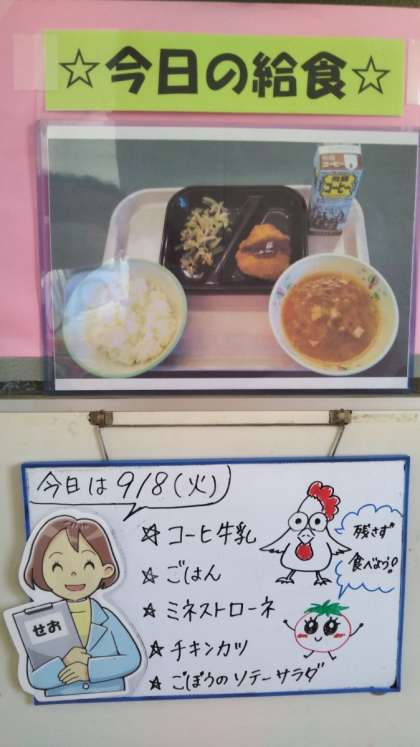 ☆今日の給食☆
コーヒー
今日は 9/8(火)
☆ コーヒ牛乳
☆ ごはん
☆ ミネストローネ
☆ チキンカツ
☆ ごぼうのソテーサラダ
残さず
食べよう!
せお